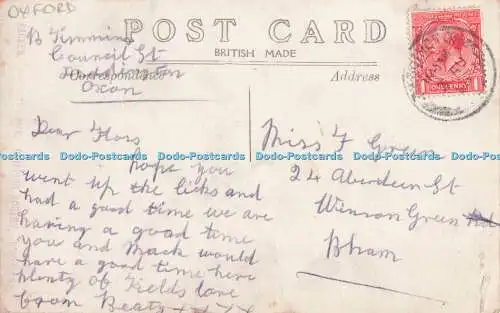 OXFORD
POST CARD
BRITISH MADE
Correspondence
Address
B Timmins
Council St
Oxon
Dear Floss
hope you
went up the licks and
had a good time we are
having a good time
you and Mack would
have a good time here
plenty of Fields love
from Beaty xxxx
Miss F Green
24 Aberdeen St
Winson Green
Bham
ONE PENNY
Dodo-Postcards Dodo-Postcards Dodo-Postcards Dodo-Postcards